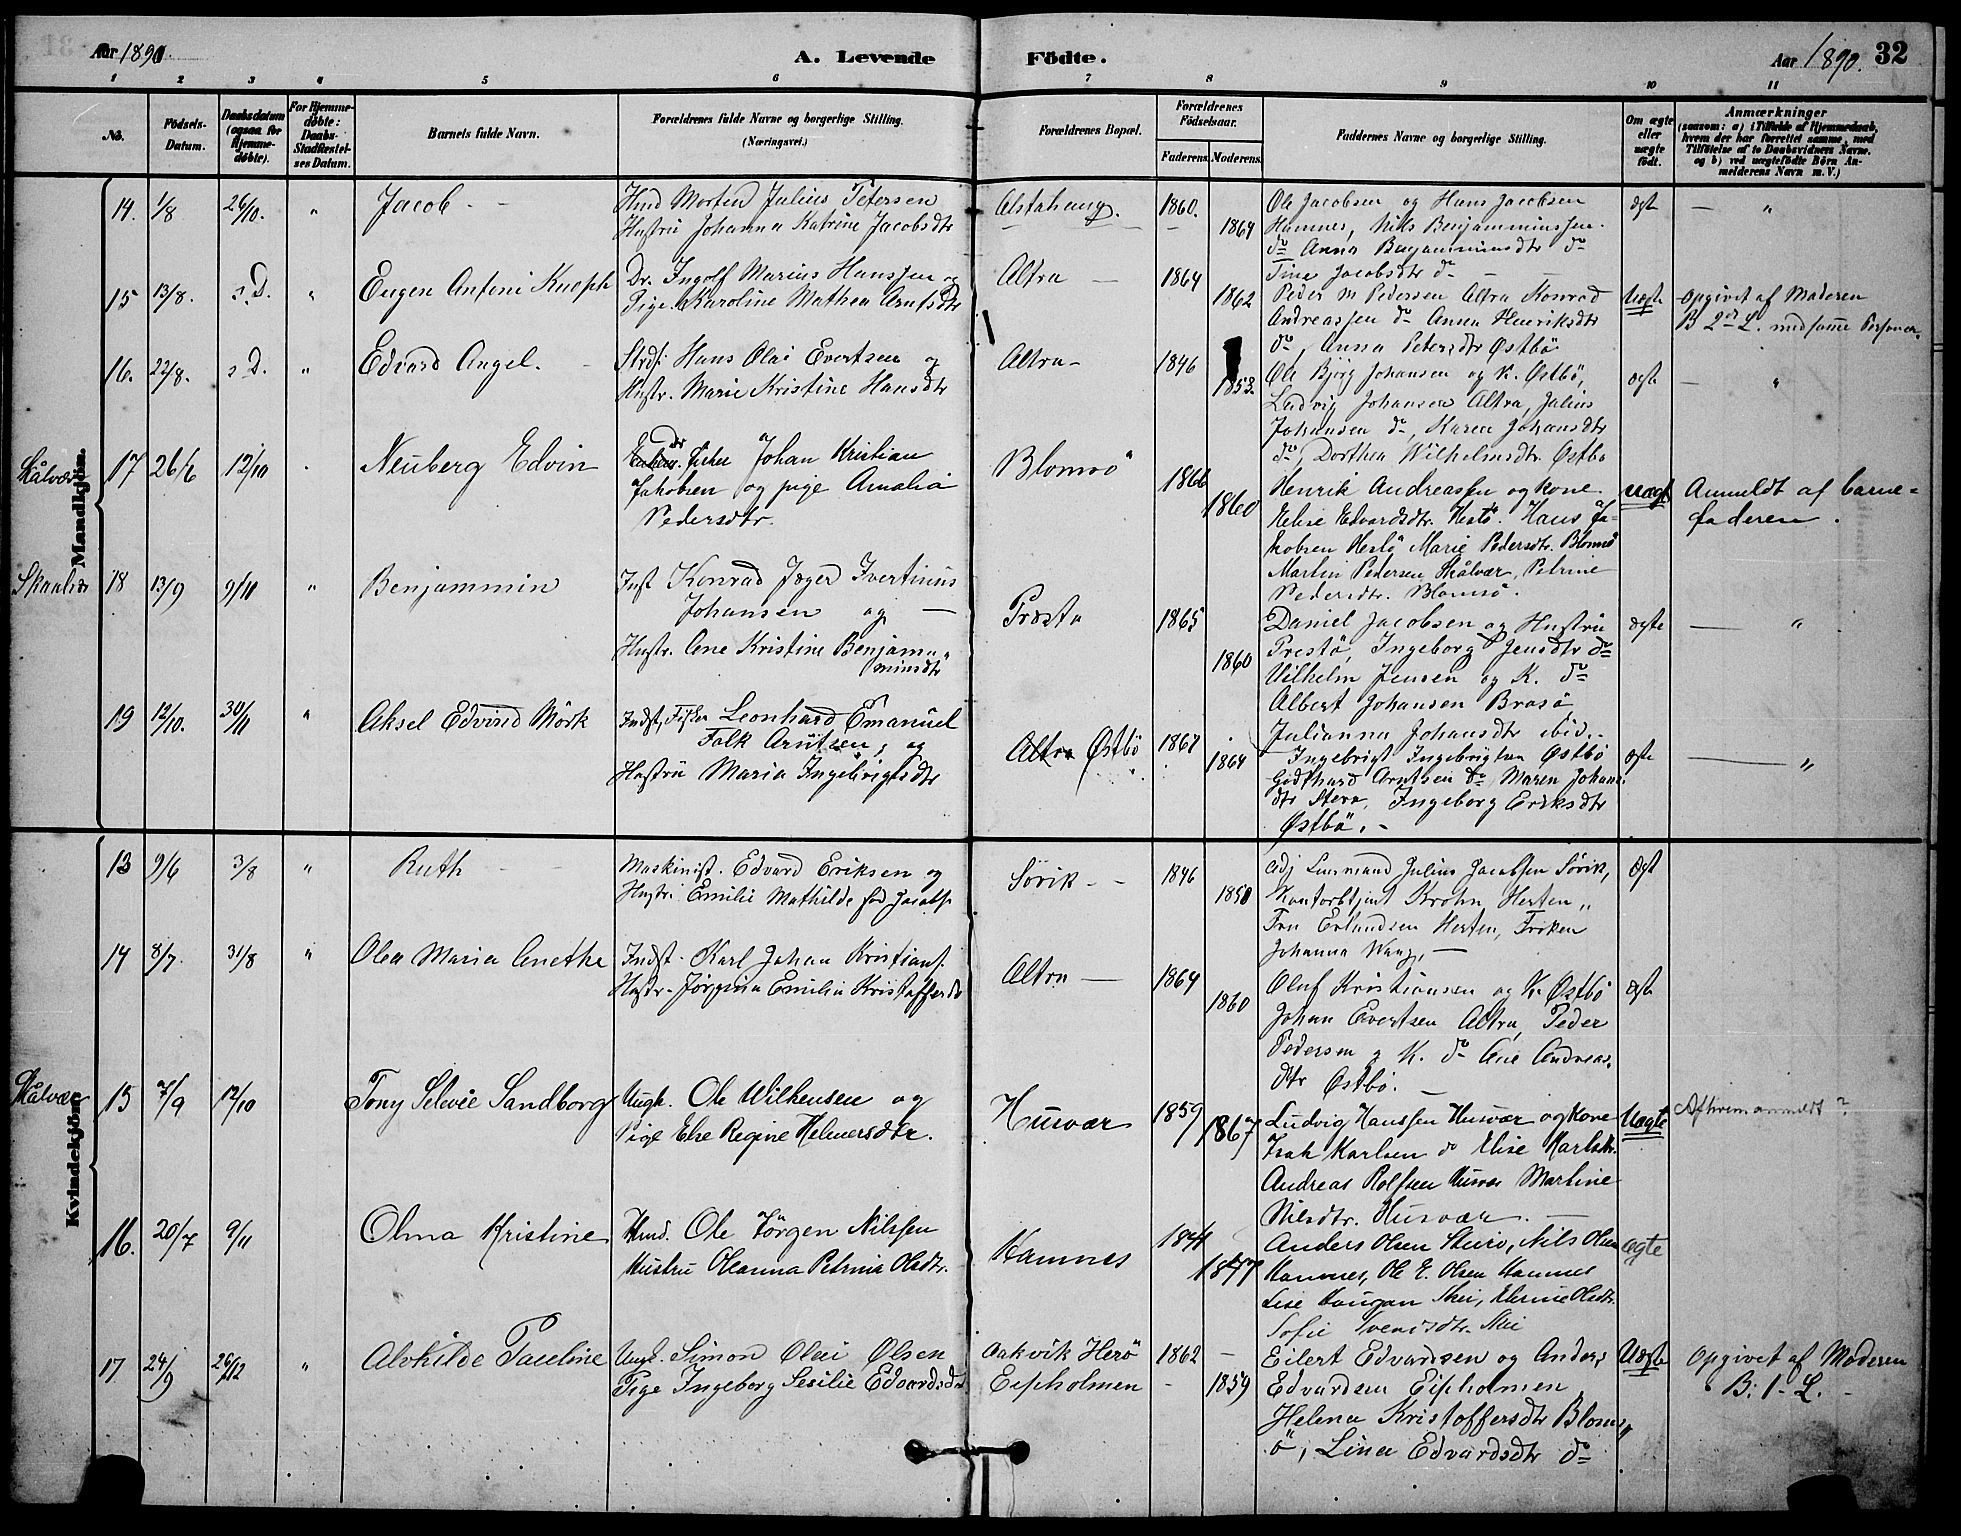 Aar 1890.
A. Levende
Födte.
Aar 1890.
32
1
2
3
4
5
6
7
8
9
10
11
No.
Födsels-
Datum.
Daabsdatum
(ogsaa for
Hjemme-
døbte).
For Hjemme-
døbte:
Daabs-
Stadfæstel-
ses Datum.
Barnets fulde Navn.
Forældrenes fulde Navne og borgerlige Stilling.
(Næringsvei.)
Forældrenes Bopæl.
Forældrenes
Födselsaar.
Faderens.
Moderens.
Faddernes Navne og borgerlige Stilling.
Om ægte
eller
uægte
født.
Anmærkninger
(saasom: a) i Tilfælde af Hjemmedaab,
hvem der har forrettet samme, med
Tilföielse af to Daabsvidners Navne.
og b) ved uægtefödte Börn An-
melderens Navn m. V.)
Mandkjön.
14. 1/8 26/10. " Jacob - -
Hmd Morten Julius Petersen
Hustru Johanna Katrine Jacobsdtr
Alstahaug.
1860.
1864
Ole Jacobsen og Hans Jacobsen
Hamnes, Niks Benjamminssen
do Anna Benjamminsdtr do
Tine Jacobsdtr do
ægt
— "
15 13/8. s.D. " Eugen Antini Kneph
Dr. Ingolf Marius Hanssen og
Pige. Karoline Mathea Arntsdtr
Altra —
1864
1862
Peder M Pedersen Altra Konrad
Andreassen do Anna Henriksdtr
do, Anna Petersdtr Østbö
Uægte
Opgivet af Moderen
B 2den L. med samme Person.
16. 22/8. s.D. " Edvard Angel. -
Strds. Hans Olai Evertsen og
Hustr. Marie Kristine Hansdtr
Altra -
1846
1853.
Ole Bjørg Johansen og K. Østbö,
Ludvig Johansen Altra, Julius
Johansen do, Karen Johansdtr
do, Dorthea Wilhelmsdtr. Østbö
ægte
— "
Skålvær
17 26/6 12/10 Neuberg Edvin
fisker Johan Kristian
Jakobsen og pige Amalia
Pedersdtr.
Blomsö
1866
1860
Henrik Andreassen og kone
Elise Edvardsdtr. Hestö. Hans Ja-
kobsen Hestö Marie Pedersdtr. Blomsö
Martin Pedersen Skålvær, Petrine
Pedersdtr. Blomsö.
uægt
Anmeldt af barne=
faderen.
18 13/9 9/11 " Benjammin
Inst Konrad Jæger Ivertinius
Johansen og —
Hustr. Ane Kristine Benjam-
minsdtr
Præstø
1865
1860
Daniel Jacobsen og Hustru
Prestö, Ingeborg Jensdtr do
Vilhelm Jensen og K. do
Albert Johansen Brasö
Julianna Johansdtr ibid.
ægte
— "
19 12/10. 30/11 " Aksel Edvind Mörk
Indst, Fisker Leonhard Emanuel
Falk Arntsen, og
Hustru Maria Ingebrigtsdtr
Altra Østbö
1867
1864
Ingebrigt Ingebrigtsen Østbö
Godthard Arntsen do, Maren Johans
dtr Stera, Ingeborg Eriksdtr
Østbö. -
ægte
— "
Kvindekjön.
13 9/6 3/8 " Ruth - -
Maskinist. Edvard Eriksen og
Hustr. Emilie Mathilde fød Jacobs.
Sørik - -
1846
1850
adj Lensmand Julius Jacobsen Sövik,
Kontorbtjent Krohn, Hesten,
Fru Erlandsen Hesten, Frøken
Johanna Wang, —
Ægt
14 8/7. 31/8 " Olea Maria Anetha
Indst. Karl Johan Kristians.
Hustr. Jörgina Emilia Kristoffersdtr
Altra —
1864
1860
Oluf Kristiansen og K. Østbö
Johan Evertsen Altra, Peder
Pedersen og K. do Ane Andreas.
dtr Østbö. —
ægte
Skålvær
15 7/9 12/10 Tony Selvie Sandborg
Ungk. Ole Wilhensen og
Pige Else Regine Helmersdtr.
Husvær
1859
1867
Ludvig Hanssen Husvær og kone
Isak Karlsen do Elise Karlsdtr.
Andreas Rolfsen Husvær Martine
Nilsdtr. Husvær. —
Uægte
Af hvem anmeldt?
16. 20/7 9/11 Olma Kristine
Hmd. Ole Jörgen Nilssen
Hustru Oleanna Petrina Olsdtr.
Hamnes
1841
1847
Anders Olsen Sturö, Nils Olsen
Hamnes, Ole E. Olsen Hamnes
Lise Haugan Skei, Elerine Olsdtr.
Sofie Svensdtr. Skei
ægte
17 24/9 26/12 " Alvhilde Pauline
Ungk. Simon Olai Olsen
Pige Ingeborg Sesilie Edvardsdtr
Aakvik Herö
Eipholmen
1862 —
- 1859
Eilert Edvardsen og Anders
Edvardsen Eipholmen
Helena Kristoffersdtr Bloms
ö, Lina Edvardsdtr do
Uægte
Opgivet af Moderen
B. 1 - L. -